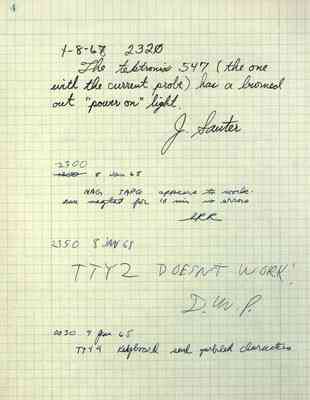 4
1-8-68, 2320
The tektronix 547 (the one
with the current probe) has a burned
out "power on" light.
J. Sauter
2300
8 Jan 68
MAG TAPE appears to work.
ran magtst for 10 min no errors
2350 8 JAN 68
TTY2 DOESNT WORK!
D.W.P.
0030 9 Jan 68
TTY4 Keyboard send garbled characters